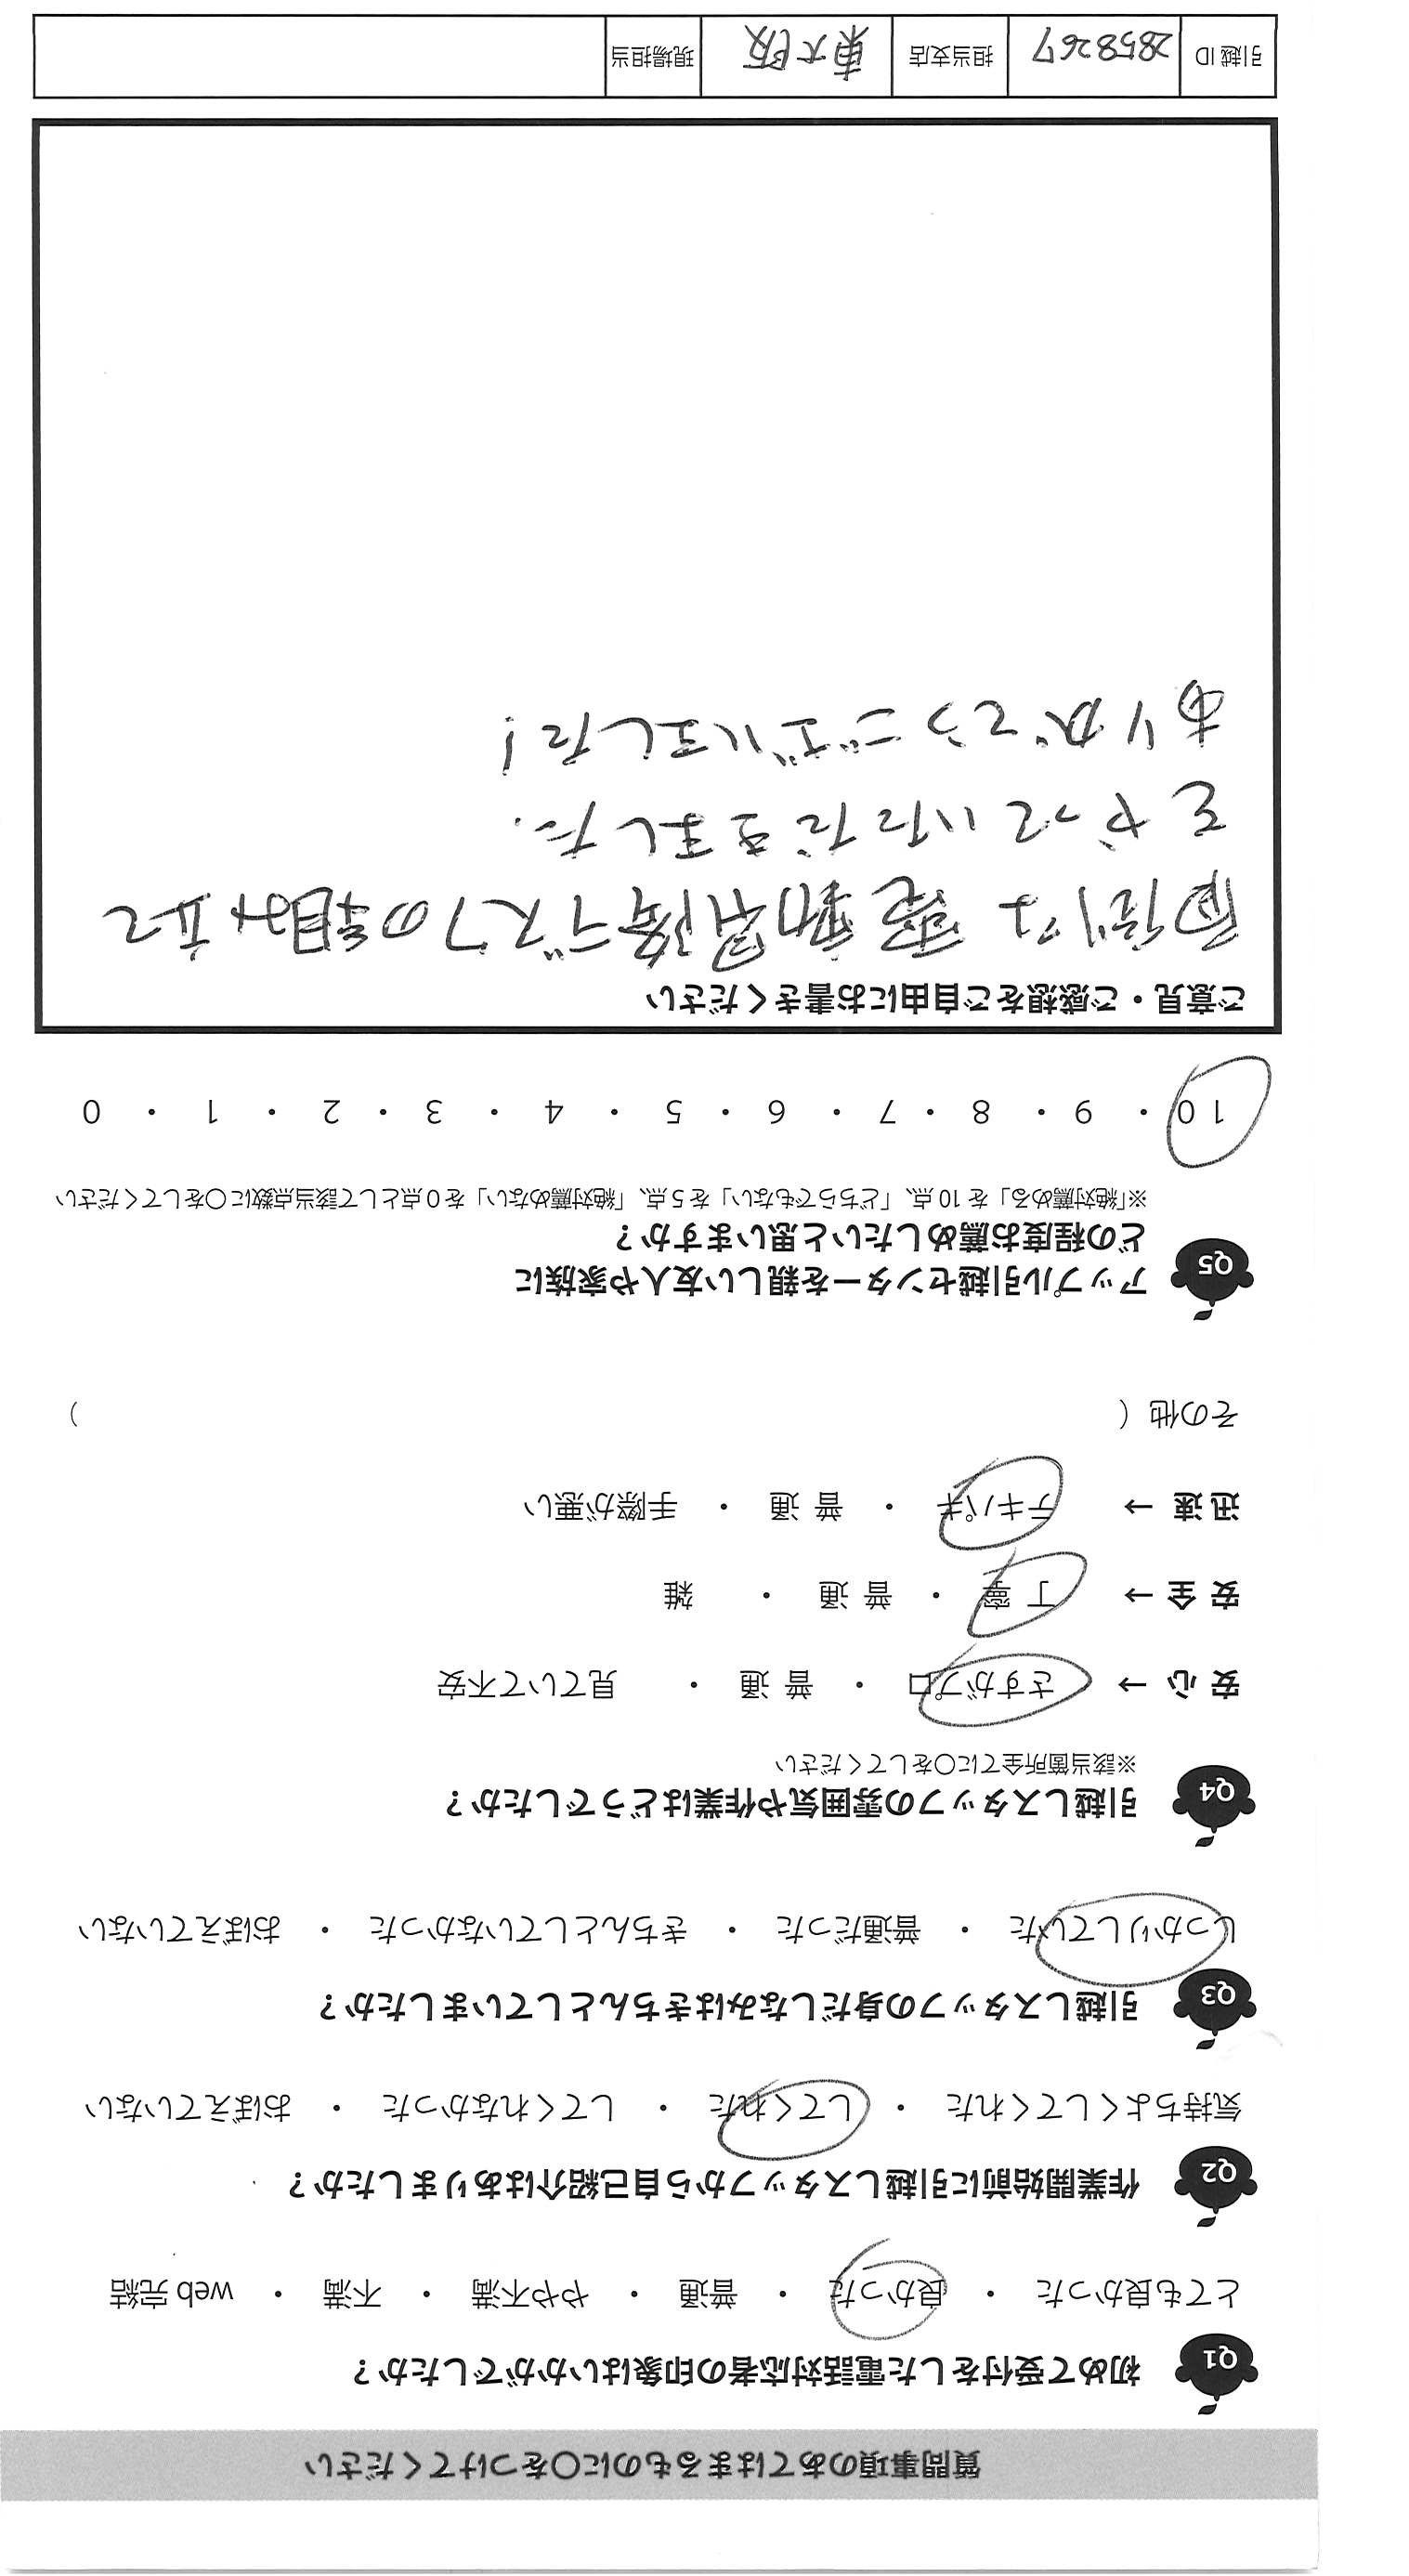 質問事項のあてはまるものに○をつけてください
Q1 初めて受付をした電話対応者の印象はいかがでしたか？
とても良かった ・ 良かった ・ 普通 ・ やや不満 ・ 不満 ・ web 完結
Q2 作業開始前に引越しスタッフから自己紹介はありましたか？
気持ちよくしてくれた ・ してくれた ・ してくれなかった ・ おぼえていない
Q3 引越しスタッフの身だしなみはきちんとしていましたか？
しっかりしていた ・ 普通だった ・ きちんとしていなかった ・ おぼえていない
Q4 引越しスタッフの雰囲気や作業はどうでしたか？
※該当箇所全てに○をしてください
安 心 → さすがプロ ・ 普 通 ・ 見ていて不安
安 全 → 丁 寧 ・ 普 通 ・ 雑
迅 速 → テキパキ ・ 普 通 ・ 手際が悪い
その他（ ）
Q5 アップル引越センターを親しい友人や家族に
どの程度お薦めしたいと思いますか？
※「絶対薦める」を 10 点、「どちらでもない」を 5 点、「絶対薦めない」を 0 点として該当点数に○をしてください
10 ・ 9 ・ 8 ・ 7 ・ 6 ・ 5 ・ 4 ・ 3 ・ 2 ・ 1 ・ 0
ご意見・ご感想をご自由にお書きください
面倒な電動昇降デスクの組み立て
をやっていただきました.
ありがとうございました!
引越 ID 2858267 担当支店 東大阪 現場担当